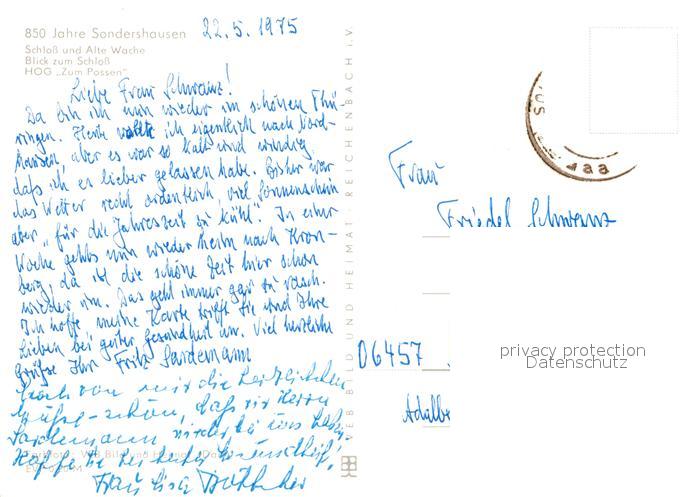 850 Jahre Sondershausen
22.5.1975
Schloß und Alte Wache
Blick zum Schloß
HOG „Zum Possen"
Liebe Frau Schwanz!
Da bin ich nun wieder im schönen Thü-
ringen. Heute wollte ich eigentlich nach Nord-
hausen aber es war so kalt und windig,
daß ich es lieber gelassen habe. Bisher war
das Wetter recht ordentlich, viel Sonnenschein
aber „für die Jahreszeit zu kühl". In einer
Woche gehts nun wieder heim nach Kron-
berg, da ist die schöne Zeit hier schon
wieder um. Das geht immer gar zu rasch.
Ich hoffe, meine Karte trifft Sie und Ihre
Lieben bei guter Gesundheit an. Viel herzliche
Grüße Ihr Fritz Sardemann
Auch von mir die herzlichsten
Grüße - schön, daß wir Herrn
Sardemann wieder bei uns haben
Hoffe Sie bei bester Gesundheit,
Frau Lisa
VEB BILD UND HEIMAT REICHENBACH i.V.
Frau
Friedel Schwanz
06457
Adalb
privacy protection
Datenschutz